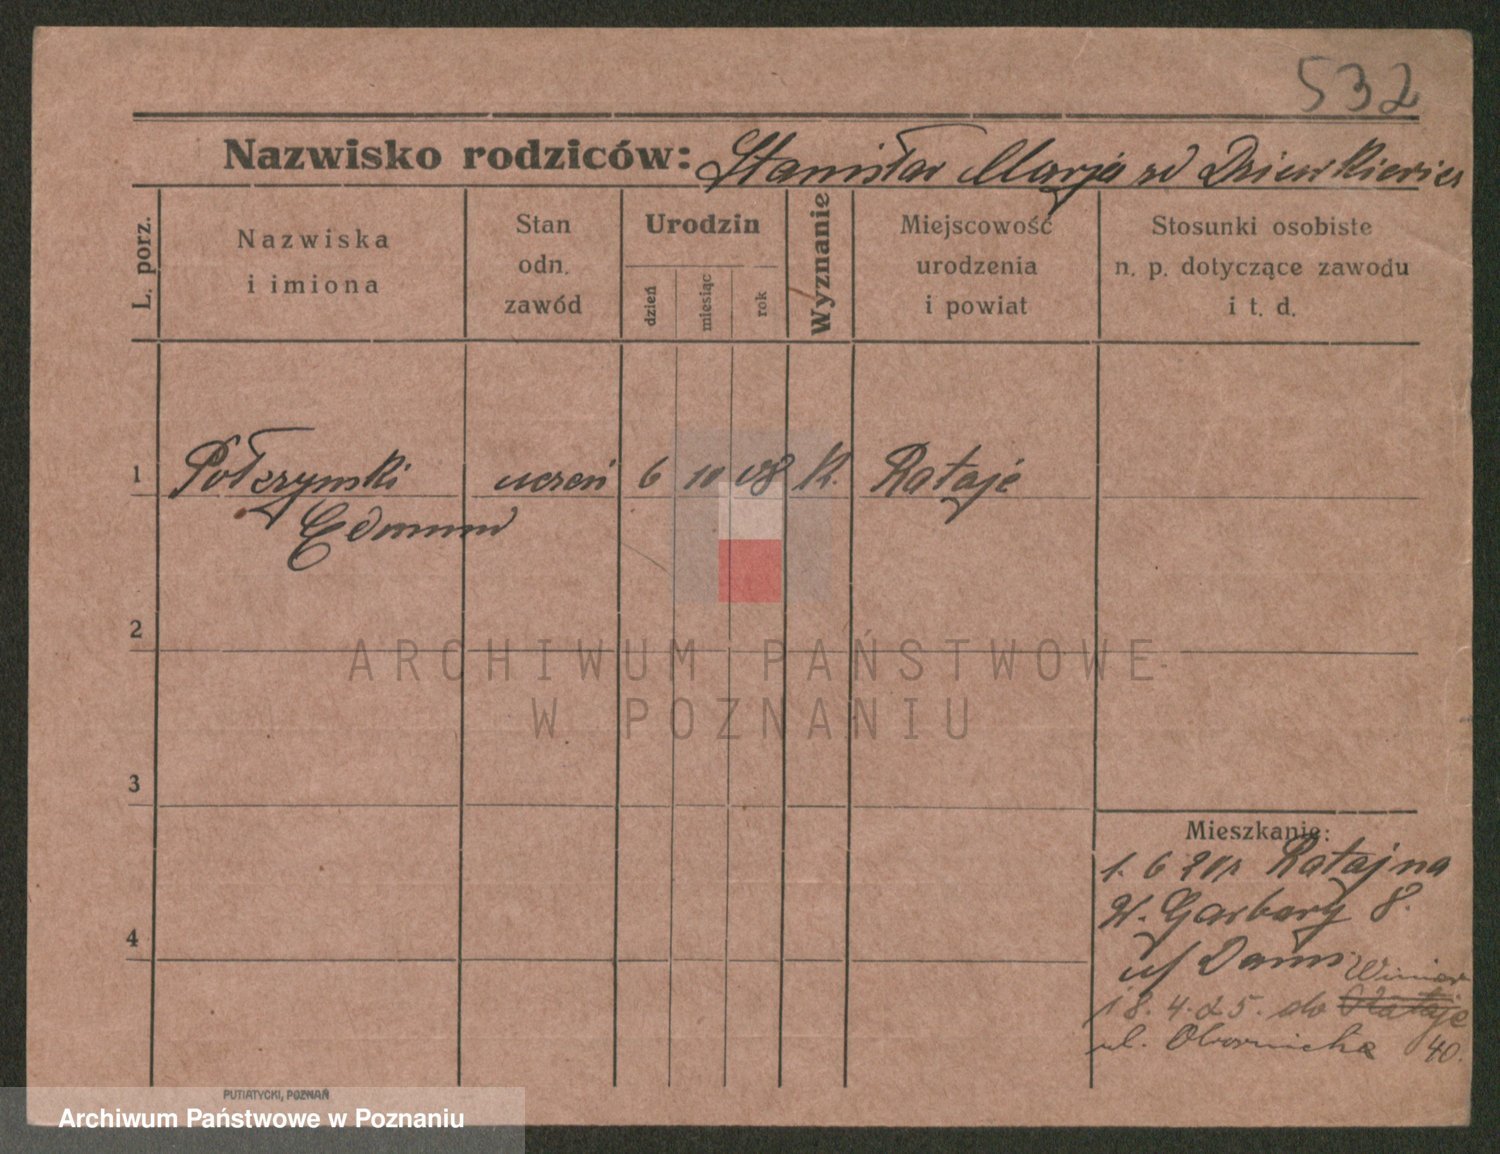 532
Nazwisko rodziców: Stanisław Marja zd Dziurkiewicz
L. porz.
Nazwiska i imiona
Stan odn. zawód
Urodzin
dzień
miesiąc
rok
Wyznanie
Miejscowość urodzenia i powiat
Stosunki osobiste n. p. dotyczące zawodu i t. d.
1 Połczynski uczeń 6 10 08 K. Rataje
Edmund
2
ARCHIWUM PAŃSTWOWE
W POZNANIU
3
Mieszkanie:
1. 6 20 z Rataj na
W. Garbary 8.
4
u/
18. 4. 25. do Rataje
ul. Obornicka 40.
PUTIATYCKI, POZNAŃ
Archiwum Państwowe w Poznaniu